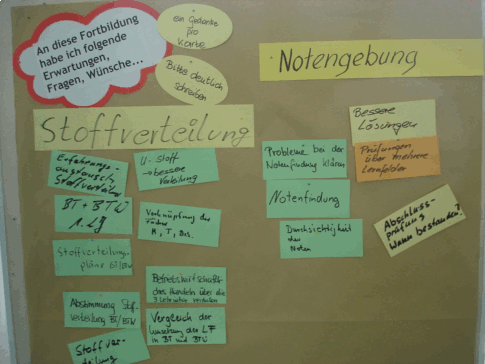 An diese Fortbildung
habe ich folgende
Erwartungen,
Fragen, Wünsche...
ein Gedanke
pro
Karte
Bitte deutlich
schreiben
Notengebung
Stoffverteilung
Bessere
Lösungen
Prüfungen
über mehrere
Lernfelder
Probleme bei der
Notenfindung klären
Notenfindung
Durchsichtigkeit
der
Noten
Abschluss-
prüfung
wann bestanden?
Erfahrungs-
austausch
Stoffverteilung
U-Stoff
→ bessere
Verteilung
BT + BTW
1. LJ
Verknüpfung der
Fächer
Stoffverteilungs-
pläne
Abstimmung Stoff-
verteilung BT/BTW
Betriebswirtschaftli-
ches Handeln über die
3 Lehrjahre verteilen
Vergleich der
Umsetzung der LF
in BT und BTW
Stoffver-
teilung